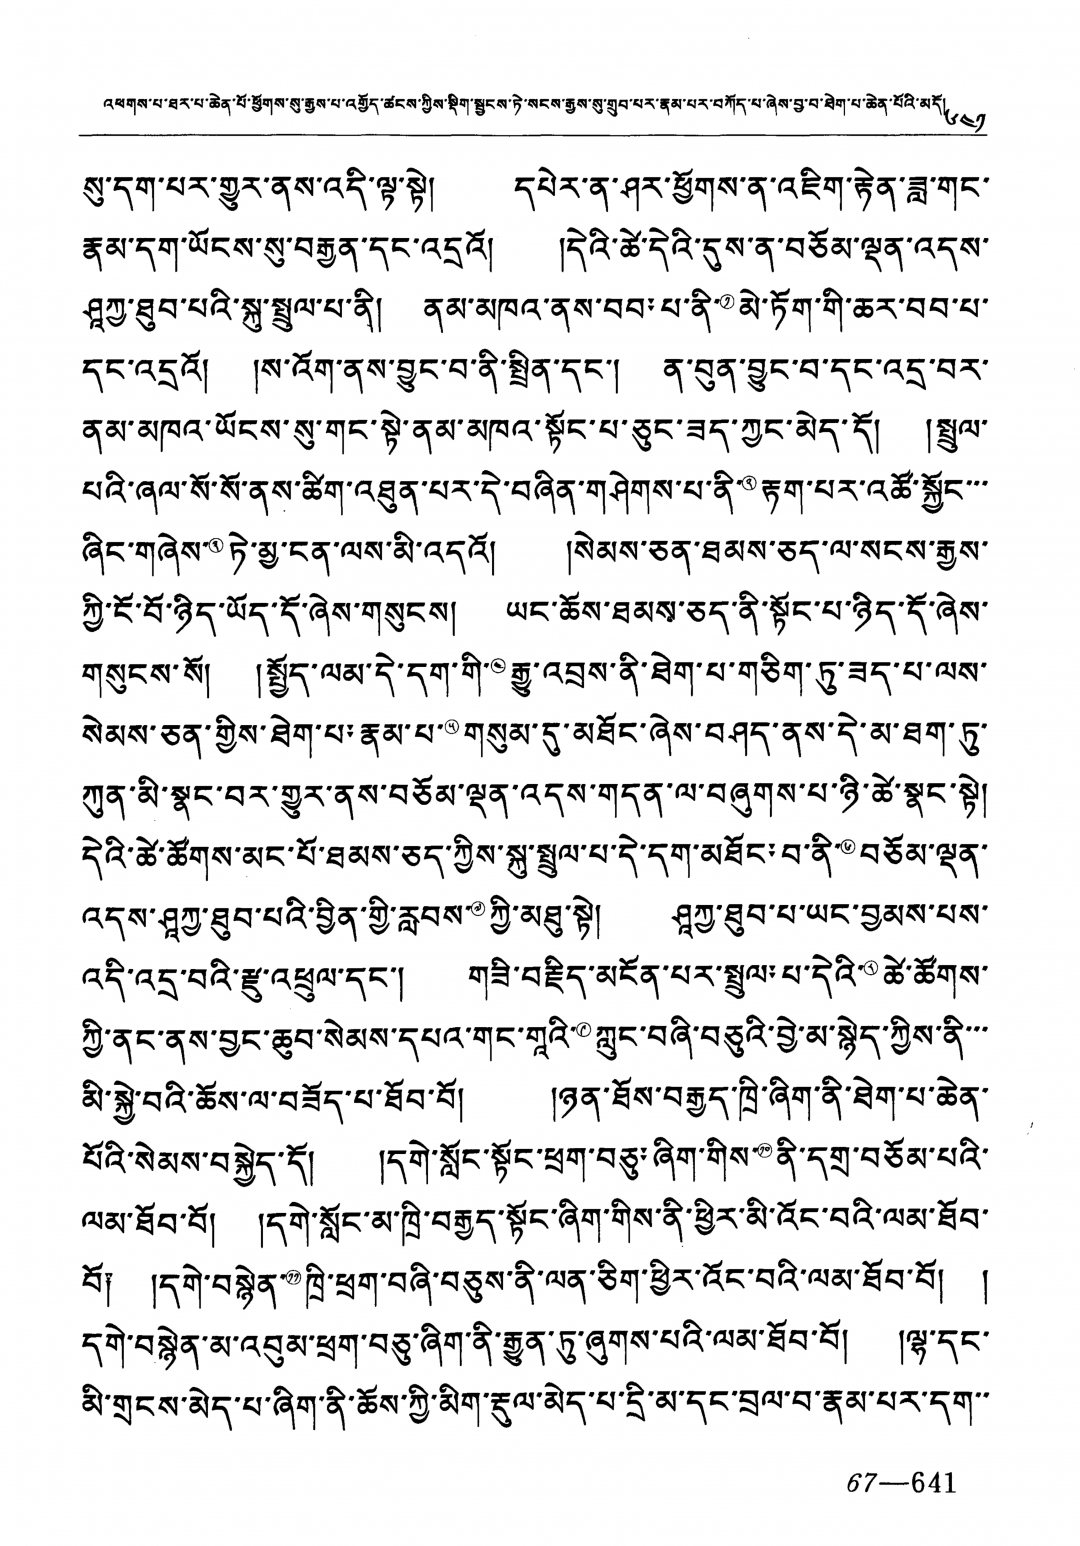 འཕགས་པ་ཐར་པ་ཆེན་པོ་ཕྱོགས་སུ་རྒྱས་པ་འགྱོད་ཚངས་ཀྱིས་སྡིག་སྦྱངས་ཏེ་སངས་རྒྱས་སུ་གྲུབ་པར་རྣམ་པར་བཀོད་པ་ཞེས་བྱ་བ་ཐེག་པ་ཆེན་པོའི་མདོ། ༦༤༡
སུ་དག་པར་གྱུར་ནས་འདི་ལྟ་སྟེ། དཔེར་ན་ཤར་ཕྱོགས་ན་འཇིག་རྟེན་ཟླ་གང་
རྣམ་དག་ཡོངས་སུ་བརྒྱན་དང་འདྲའོ། །དེའི་ཚེ་དེའི་དུས་ན་བཅོམ་ལྡན་འདས་
ཤཱཀྱ་ཐུབ་པའི་སྐུ་སྤྲུལ་པ་ནི། ནམ་མཁའ་ནས་བབ་པ་ནི་①མེ་ཏོག་གི་ཆར་བབ་པ་
དང་འདྲའོ། །ས་འོག་ནས་བྱུང་བ་ནི་སྤྲིན་དང་། ན་བུན་བྱུང་བ་དང་འདྲ་བར་
ནམ་མཁའ་ཡོངས་སུ་གང་སྟེ་ནམ་མཁའ་སྟོང་པ་ཅུང་ཟད་ཀྱང་མེད་དོ། །སྤྲུལ་
པའི་ཞལ་སོ་སོ་ནས་ཚིག་འཐུན་པར་དེ་བཞིན་གཤེགས་པ་ནི་②རྟག་པར་འཚོ་སྐྱོང་…
ཞིང་གཞེས་③ཏེ་མྱ་ངན་ལས་མི་འདའོ། །སེམས་ཅན་ཐམས་ཅད་ལ་སངས་རྒྱས་
ཀྱི་ངོ་བོ་ཉིད་ཡོད་དོ་ཞེས་གསུངས། ཡང་ཆོས་ཐམས་ཅད་ནི་སྟོང་པ་ཉིད་དོ་ཞེས་
གསུངས་སོ། །སྤྱོད་ལམ་དེ་དག་གི་④རྒྱུ་འབྲས་ནི་ཐེག་པ་གཅིག་ཏུ་ཟད་པ་ལས་
སེམས་ཅན་གྱིས་ཐེག་པ་རྣམ་པ་⑤གསུམ་དུ་མཐོང་ཞེས་བཤད་ནས་དེ་མ་ཐག་ཏུ་
ཀུན་མི་སྣང་བར་གྱུར་ནས་བཅོམ་ལྡན་འདས་གདན་ལ་བཞུགས་པ་ཉི་ཚེ་སྣང་སྟེ།
དེའི་ཚེ་ཚོགས་མང་པོ་ཐམས་ཅད་ཀྱིས་སྐུ་སྤྲུལ་པ་དེ་དག་མཐོང་བ་ནི་⑥བཅོམ་ལྡན་
འདས་ཤཱཀྱ་ཐུབ་པའི་བྱིན་གྱི་རླབས་⑦ཀྱི་མཐུ་སྟེ། ཤཱཀྱ་ཐུབ་པ་ཡང་བྱམས་པས་
འདི་འདྲ་བའི་རྫུ་འཕྲུལ་དང་། གཟི་བརྗིད་མངོན་པར་སྤྲུལ་པ་དེའི་⑧ཚེ་ཚོགས་
ཀྱི་ནང་ནས་བྱང་ཆུབ་སེམས་དཔའ་གང་གཱའི་⑨ཀླུང་བཞི་བཅུའི་བྱེ་མ་སྙེད་ཀྱིས་ནི་…
མི་སྐྱེ་བའི་ཆོས་ལ་བཟོད་པ་ཐོབ་བོ། །ཉན་ཐོས་བརྒྱད་ཁྲི་ཞིག་ནི་ཐེག་པ་ཆེན་
པོའི་སེམས་བསྐྱེད་དོ། །དགེ་སློང་སྟོང་ཕྲག་བཅུ་ཞིག་གིས་⑩ནི་དགྲ་བཅོམ་པའི་
ལམ་ཐོབ་བོ། །དགེ་སློང་མ་ཁྲི་བརྒྱད་སྟོང་ཞིག་གིས་ནི་ཕྱིར་མི་འོང་བའི་ལམ་ཐོབ་
བོ། །དགེ་བསྙེན་⑪ཁྲི་ཕྲག་བཞི་བཅུས་ནི་ལན་ཅིག་ཕྱིར་འོང་བའི་ལམ་ཐོབ་བོ། །
དགེ་བསྙེན་མ་འབུམ་ཕྲག་བཅུ་ཞིག་ནི་རྒྱུན་ཏུ་ཞུགས་པའི་ལམ་ཐོབ་བོ། །ལྷ་དང་
མི་གྲངས་མེད་པ་ཞིག་ནི་ཆོས་ཀྱི་མིག་རྡུལ་མེད་པ་དྲི་མ་དང་བྲལ་བ་རྣམ་པར་དག་‥
67—641